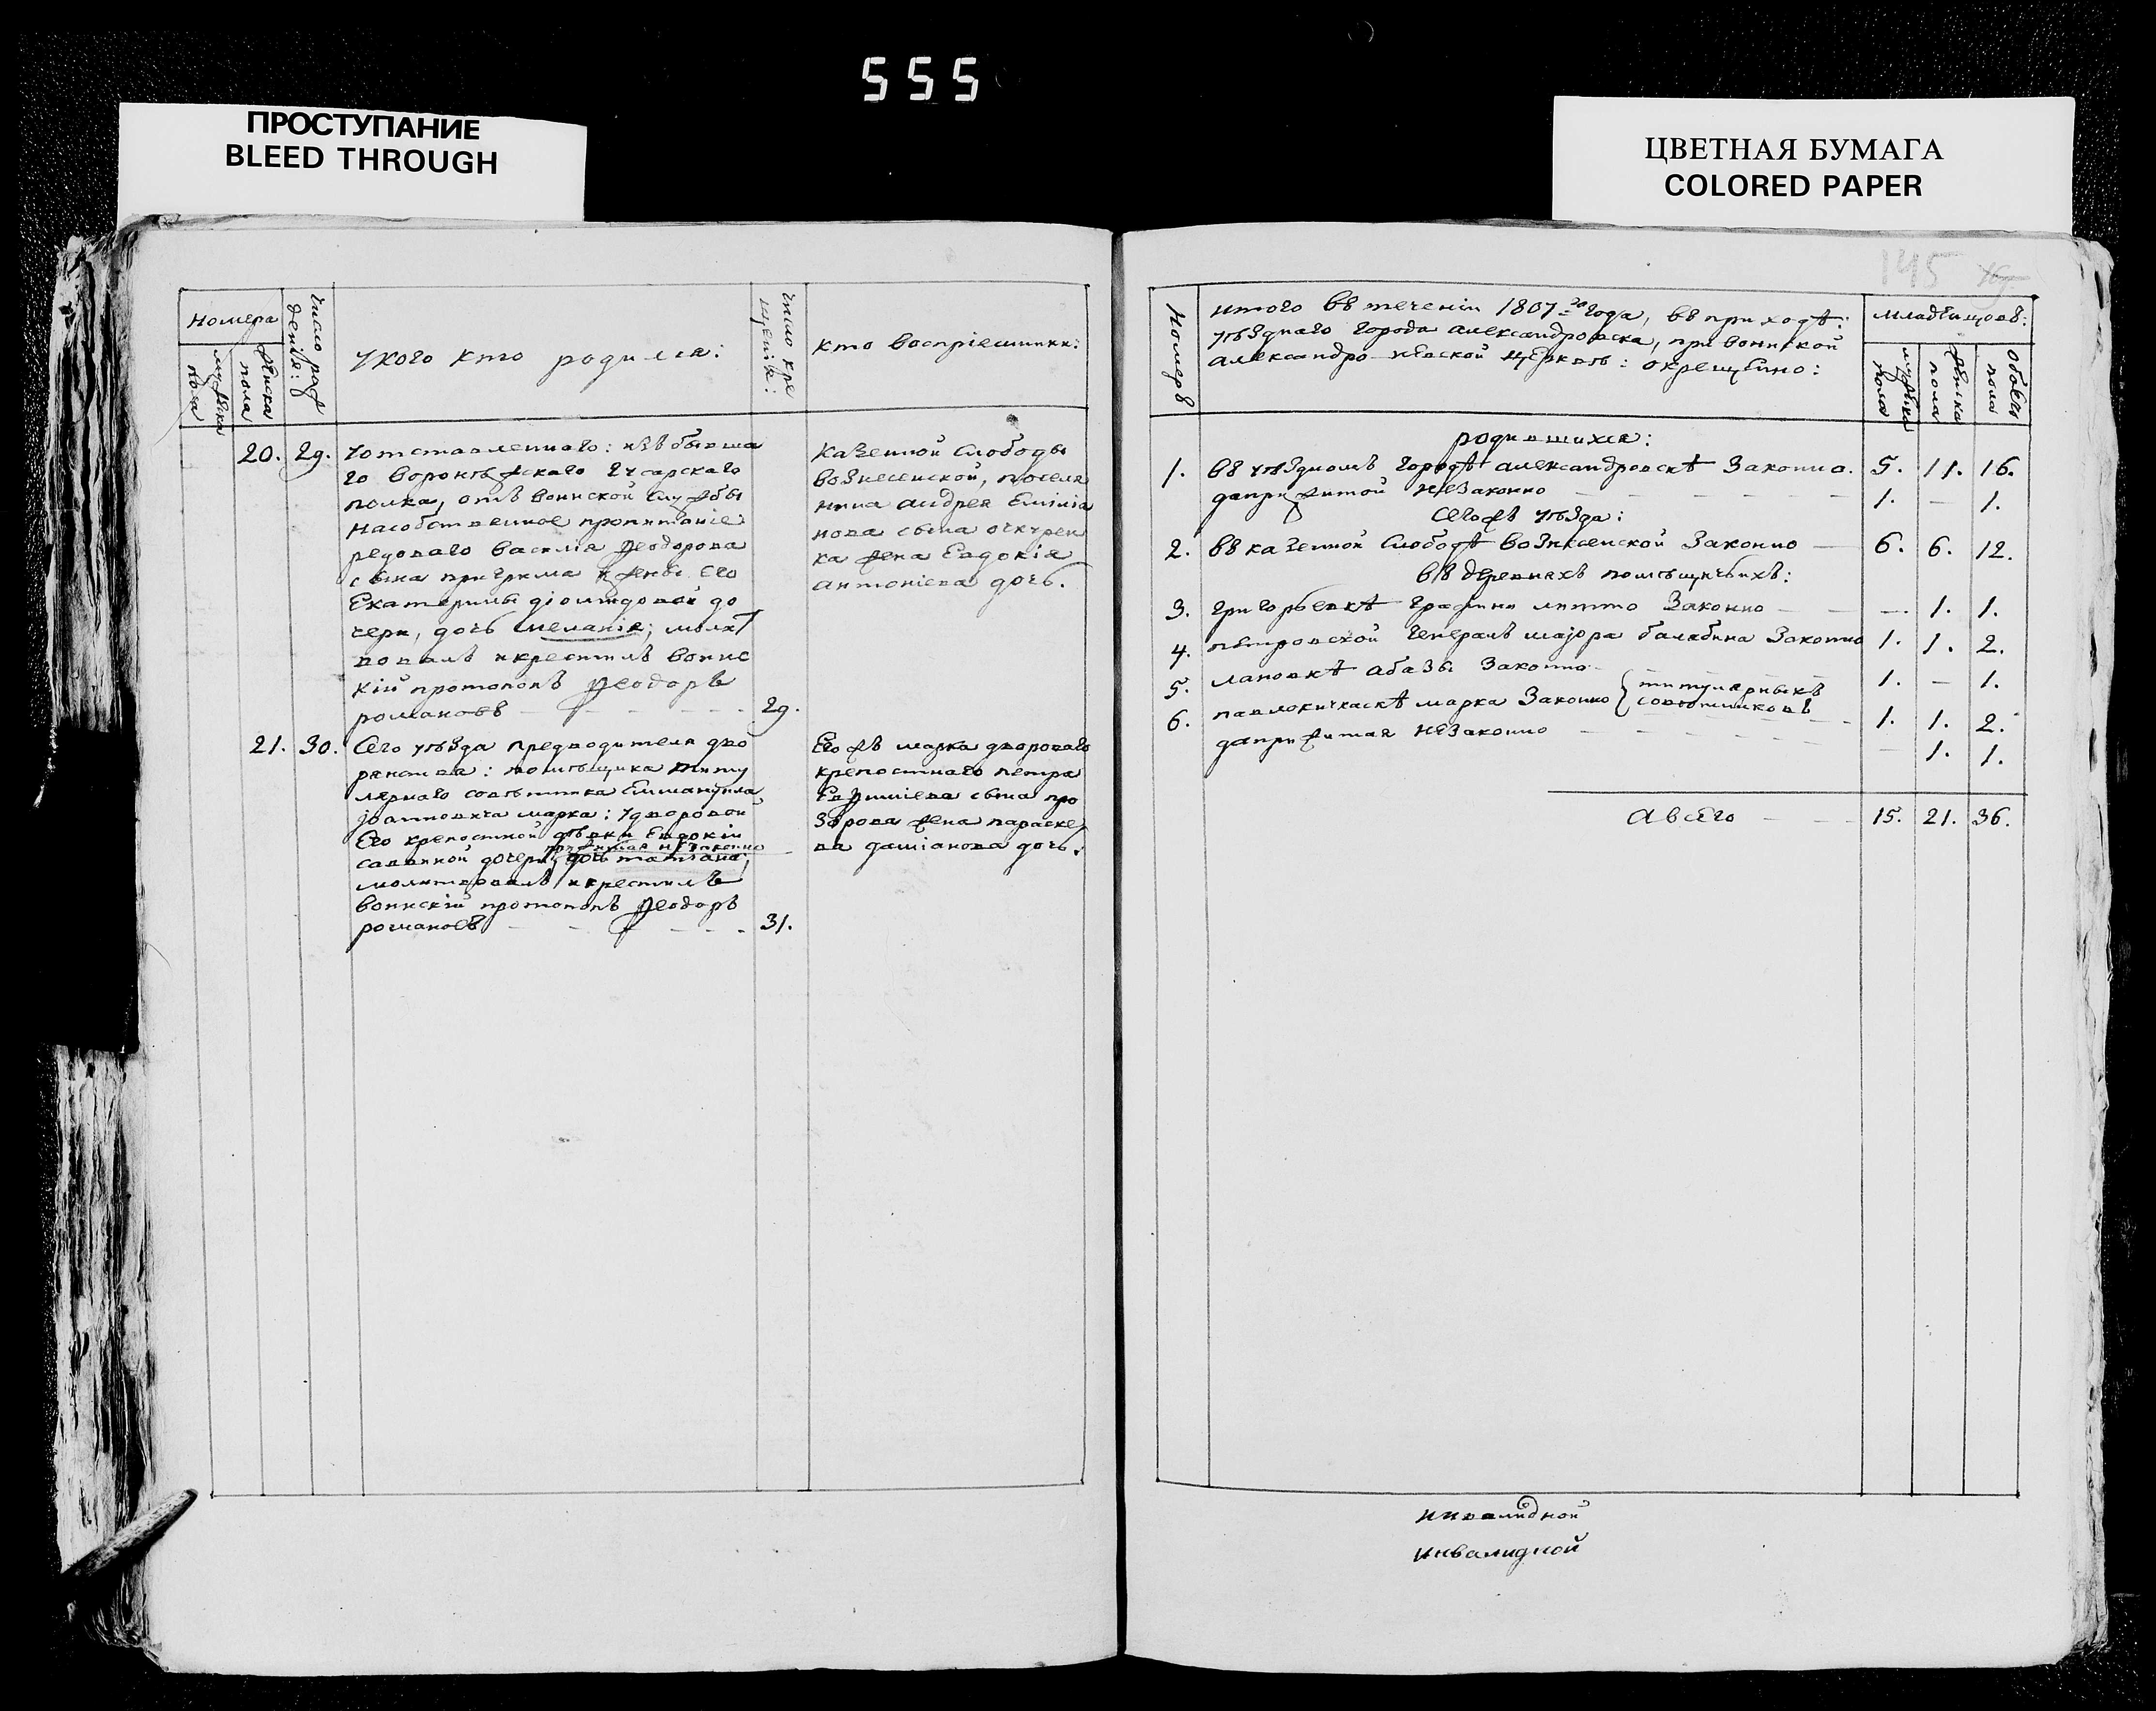 555
ПРОСТУПАНИЕ
BLEED THROUGH
ЦВЕТНАЯ БУМАГА
COLORED PAPER
145
номера
мужска пола
женска пола
число рож денія:
укого кто родился:
число кре щенія:
кто воспріемники:
20. 29. Уотставленного: изъ бывша
го воронѣжскаго гусарскаго
полка, отъ воинской службы
насобственное пропитаніе:
редоваго василія Ѳеодорова
сына пригрима ижены его
Екатерины діомидовой до
чери, дочь меланія; молит
вовалъ икрестилъ воинс
кій протопопъ Ѳеодоръ
романовъ 29.
казенной слободы
вознесенской, поселя
нина андрея Емілia
нова сына очкурен
ка жена Евдокія
антоніева дочь.
21. 30. Сего уѣзда предводителя дво
рянства: помѣщика титу
лярнаго совѣтника Еммануила
јоанновича марка: удворовой
Его крепостной дѣвки Евдокіи
прижитая незаконно
саввиной дочери, дочь татіана;
молитвовалъ икрестилъ
воинскій протопопъ Ѳеодоръ
романовъ 31.
Его жъ марка двороваго
крепостнаго петра
Евѳиміева сына про
зорова жена параске
ва даміанова дочь.
номеръ
итого въ теченіи 1807-го года, въ приходѣ:
уѣзднаго города александровска, при воинской
александро-невской церквѣ: окрещено:
младѣнцовъ:
мужска пола
женска пола
обоего пола
родившихся:
1. въ уѣздномъ городѣ александровскѣ законно. 5. 11. 16.
даприжитой незаконно 1. — 1.
сегожъ уѣзда:
2. въ казенной слободѣ вознесенской законно — 6. 6. 12.
въ деревняхъ помѣщичьихъ:
3. григорьевкѣ графини литто законно — 1. 1.
4. пѣтровской генералъ маjора балабина законно 1. 1. 2.
5. лановкѣ абазы законно 1. — 1.
титулярныхъ
6. павлокичкаскѣ марка законно совѣтниковъ 1. 1. 2.
даприжитая незаконно — 1. 1.
Авсего 15. 21. 36.
инвалидной
инвалидной